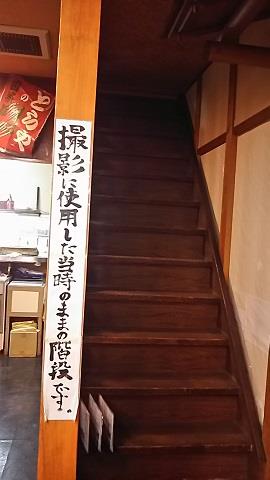 撮影に使用した当時のままの階段です。
とらや
の